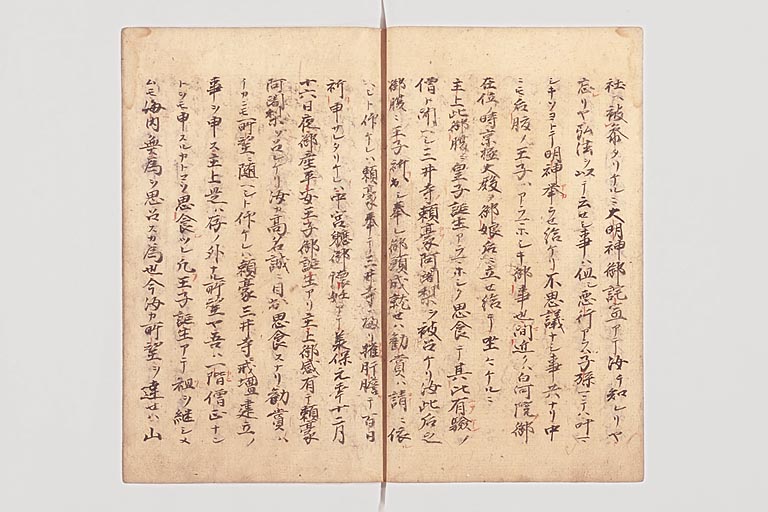 社ヘ被参タリケルニ大明神御託宣アテ汝チ知レリヤ
忘リヤ弘法ヲ以テ云セシ事ハ但シ悪行アラハ子孫マテハ叶マ
シキソヨトテ明神挙ラセ給ケリ不思議ナレシ事共ナリ中
ニモ后腹ノ王子ハアラマホシキ御事也間近クハ白河院御
在位ノ時京極大殿ノ御娘后ニ立セ給テ坐ケルニ
主上此御腹ニ皇子誕生アラマホシク思食テ其比有験ノ
僧ト聞ヘシ三井寺頼豪阿闍梨ヲ被召ケリ汝此后之
御腹ニ王子祈出シ奉レ御願成就セハ勧賞ハ請ニ依
ヘシト仰ケレハ頼豪奉テ三井寺ニ帰リ摧肝膽テ百日
祈申サレタリケレハ中宮軈御懐妊アテ承保元年十二月
十六日夜御産平安王子御誕生アリ主上御感有テ頼豪
阿闍梨ヲ召レケリ汝カ高名誠ニ目出思食スナリ勧賞ハ
イカニモ所望ニ随ヘシト仰ケレハ頼豪三井寺ニ戒壇建立ノ
事ヲ申ス主上是ハ存ノ外ナル所望ヤ吾ハ一階僧正ナン
トヲモ申スルカナト思食ツレ凡王子誕生アテ祖ヲ継シメ
ムモ海内無為ヲ思召ス為也今汝カ所望ヲ達セハ山